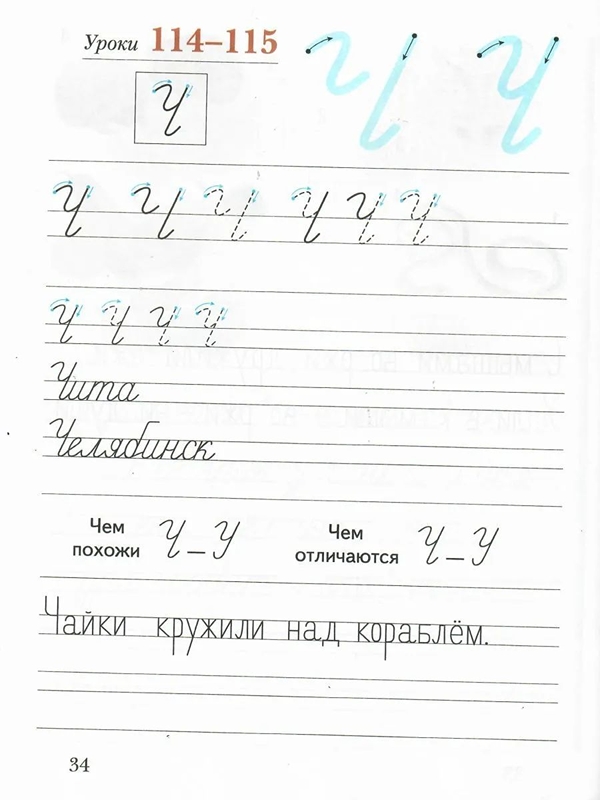 Уроки 114–115
Ч
Ч Ч Ч Ч Ч Ч
Ч Ч Ч Ч
Чита
Челябинск
Чем похожи Ч – У Чем отличаются Ч – У
Чайки кружили над кораблём.
34